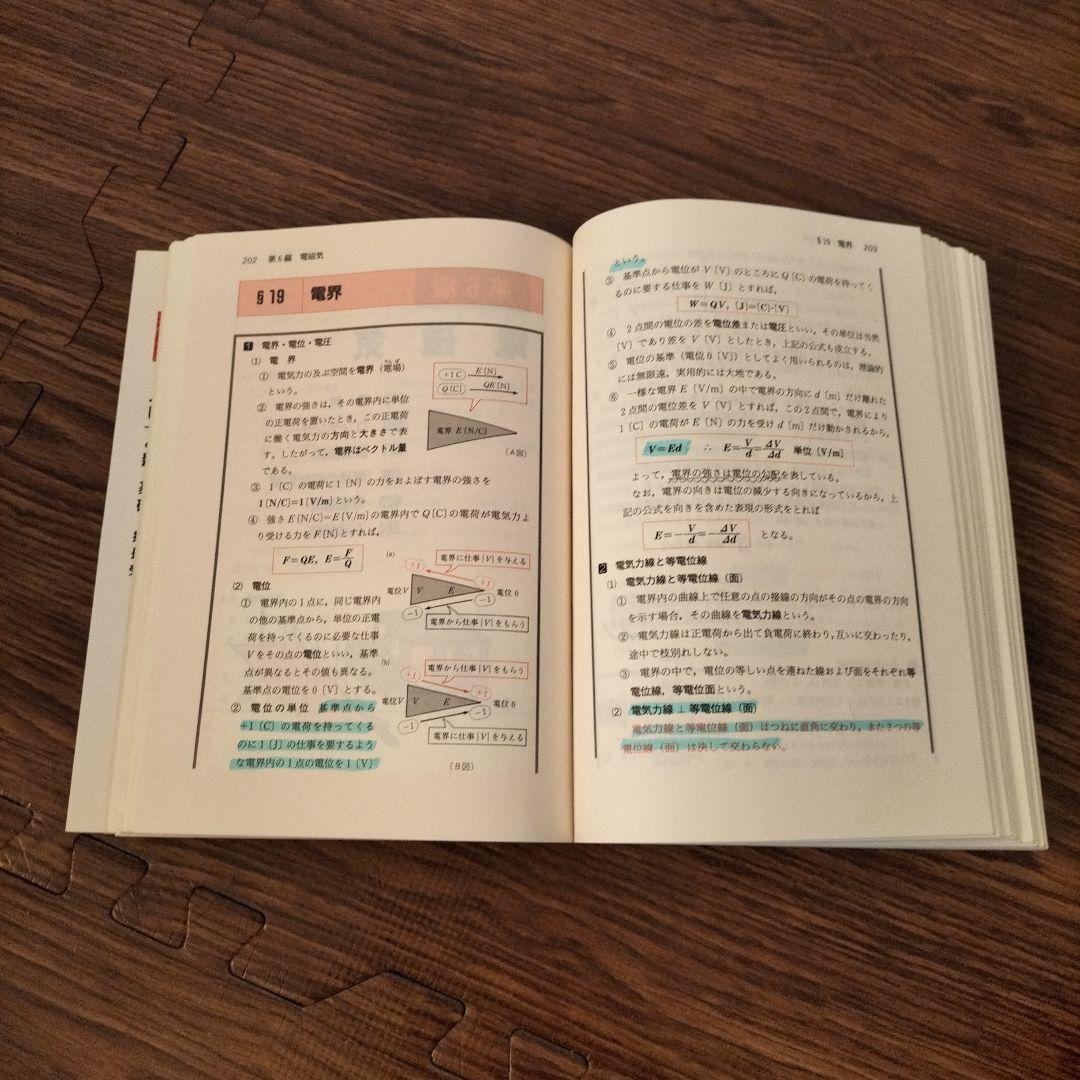 202 第6編 電磁気
§19 電界
1 電界・電位・電圧
(1) 電界
① 電気力の及ぶ空間を電界(電場)
でんば
という。
② 電界の強さは,その電界内に単位
の正電荷を置いたとき,この正電荷
に働く電気力の方向と大きさで表
す。したがって,電界はベクトル量
である。
+1C E〔N〕
Q〔C〕 QE〔N〕
電界 E〔N/C〕
〔A図〕
③ 1〔C〕の電荷に1〔N〕の力をおよぼす電界の強さを
1〔N/C〕=1〔V/m〕という。
④ 強さE〔N/C〕=E〔V/m〕の電界内でQ〔C〕の電荷が電気力よ
り受ける力をF〔N〕とすれば,
F=QE, E=F/Q
(2) 電位
① 電界内の1点に,同じ電界内
の他の基準点から,単位の正電
荷を持ってくるのに必要な仕事
Vをその点の電位といい,基準
点が異なるとその値も異なる。
基準点の電位を0〔V〕とする。
② 電位の単位 基準点から
+1〔C〕の電荷を持ってくる
のに1〔J〕の仕事を要するよう
な電界内の1点の電位を1〔V〕
(a)
電界に仕事|V|を与える
+1 +1
電位V V E 電位0
-1 -1
電界から仕事|V|をもらう
(b)
電界から仕事|V|をもらう
+1 +1
電位V V E 電位0
-1 -1
電界に仕事|V|を与える
〔B図〕
§19 電界 203
という。
③ 基準点から電位がV〔V〕のところにQ〔C〕の電荷を持ってく
るのに要する仕事をW〔J〕とすれば,
W=QV,〔J〕=〔C〕・〔V〕
④ 2点間の電位の差を電位差または電圧といい,その単位は当然
〔V〕であり差をV〔V〕としたとき,上記の公式も成立する。
⑤ 電位の基準(電位0〔V〕)としてよく用いられるのは,理論的
には無限遠,実用的には大地である。
⑥ 一様な電界E〔V/m〕の中で電界の方向にd〔m〕だけ離れた
2点間の電位差をV〔V〕とすれば,この2点間で,電界により
1〔C〕の電荷がE〔N〕の力を受けd〔m〕だけ動かされるから,
V=Ed ∴ E=V/d=ΔV/Δd 単位〔V/m〕
よって,電界の強さは電位の勾配を表している。
なお,電界の向きは電位の減少する向きになっているから,上
記の公式を向きを含めた表現の形式をとれば
E=-V/d=-ΔV/Δd となる。
2 電気力線と等電位線
(1) 電気力線と等電位線(面)
① 電界内の曲線上で任意の点の接線の方向がその点の電界の方向
を示す場合,その曲線を電気力線という。
② 電気力線は正電荷から出て負電荷に終わり,互いに交わったり,
途中で枝別れしない。
③ 電界の中で,電位の等しい点を連ねた線および面をそれぞれ等
電位線,等電位面という。
(2) 電気力線⊥等電位線(面)
電気力線と等電位線(面)はつねに直角に交わり,また2つの等
電位線(面)は決して交わらない。